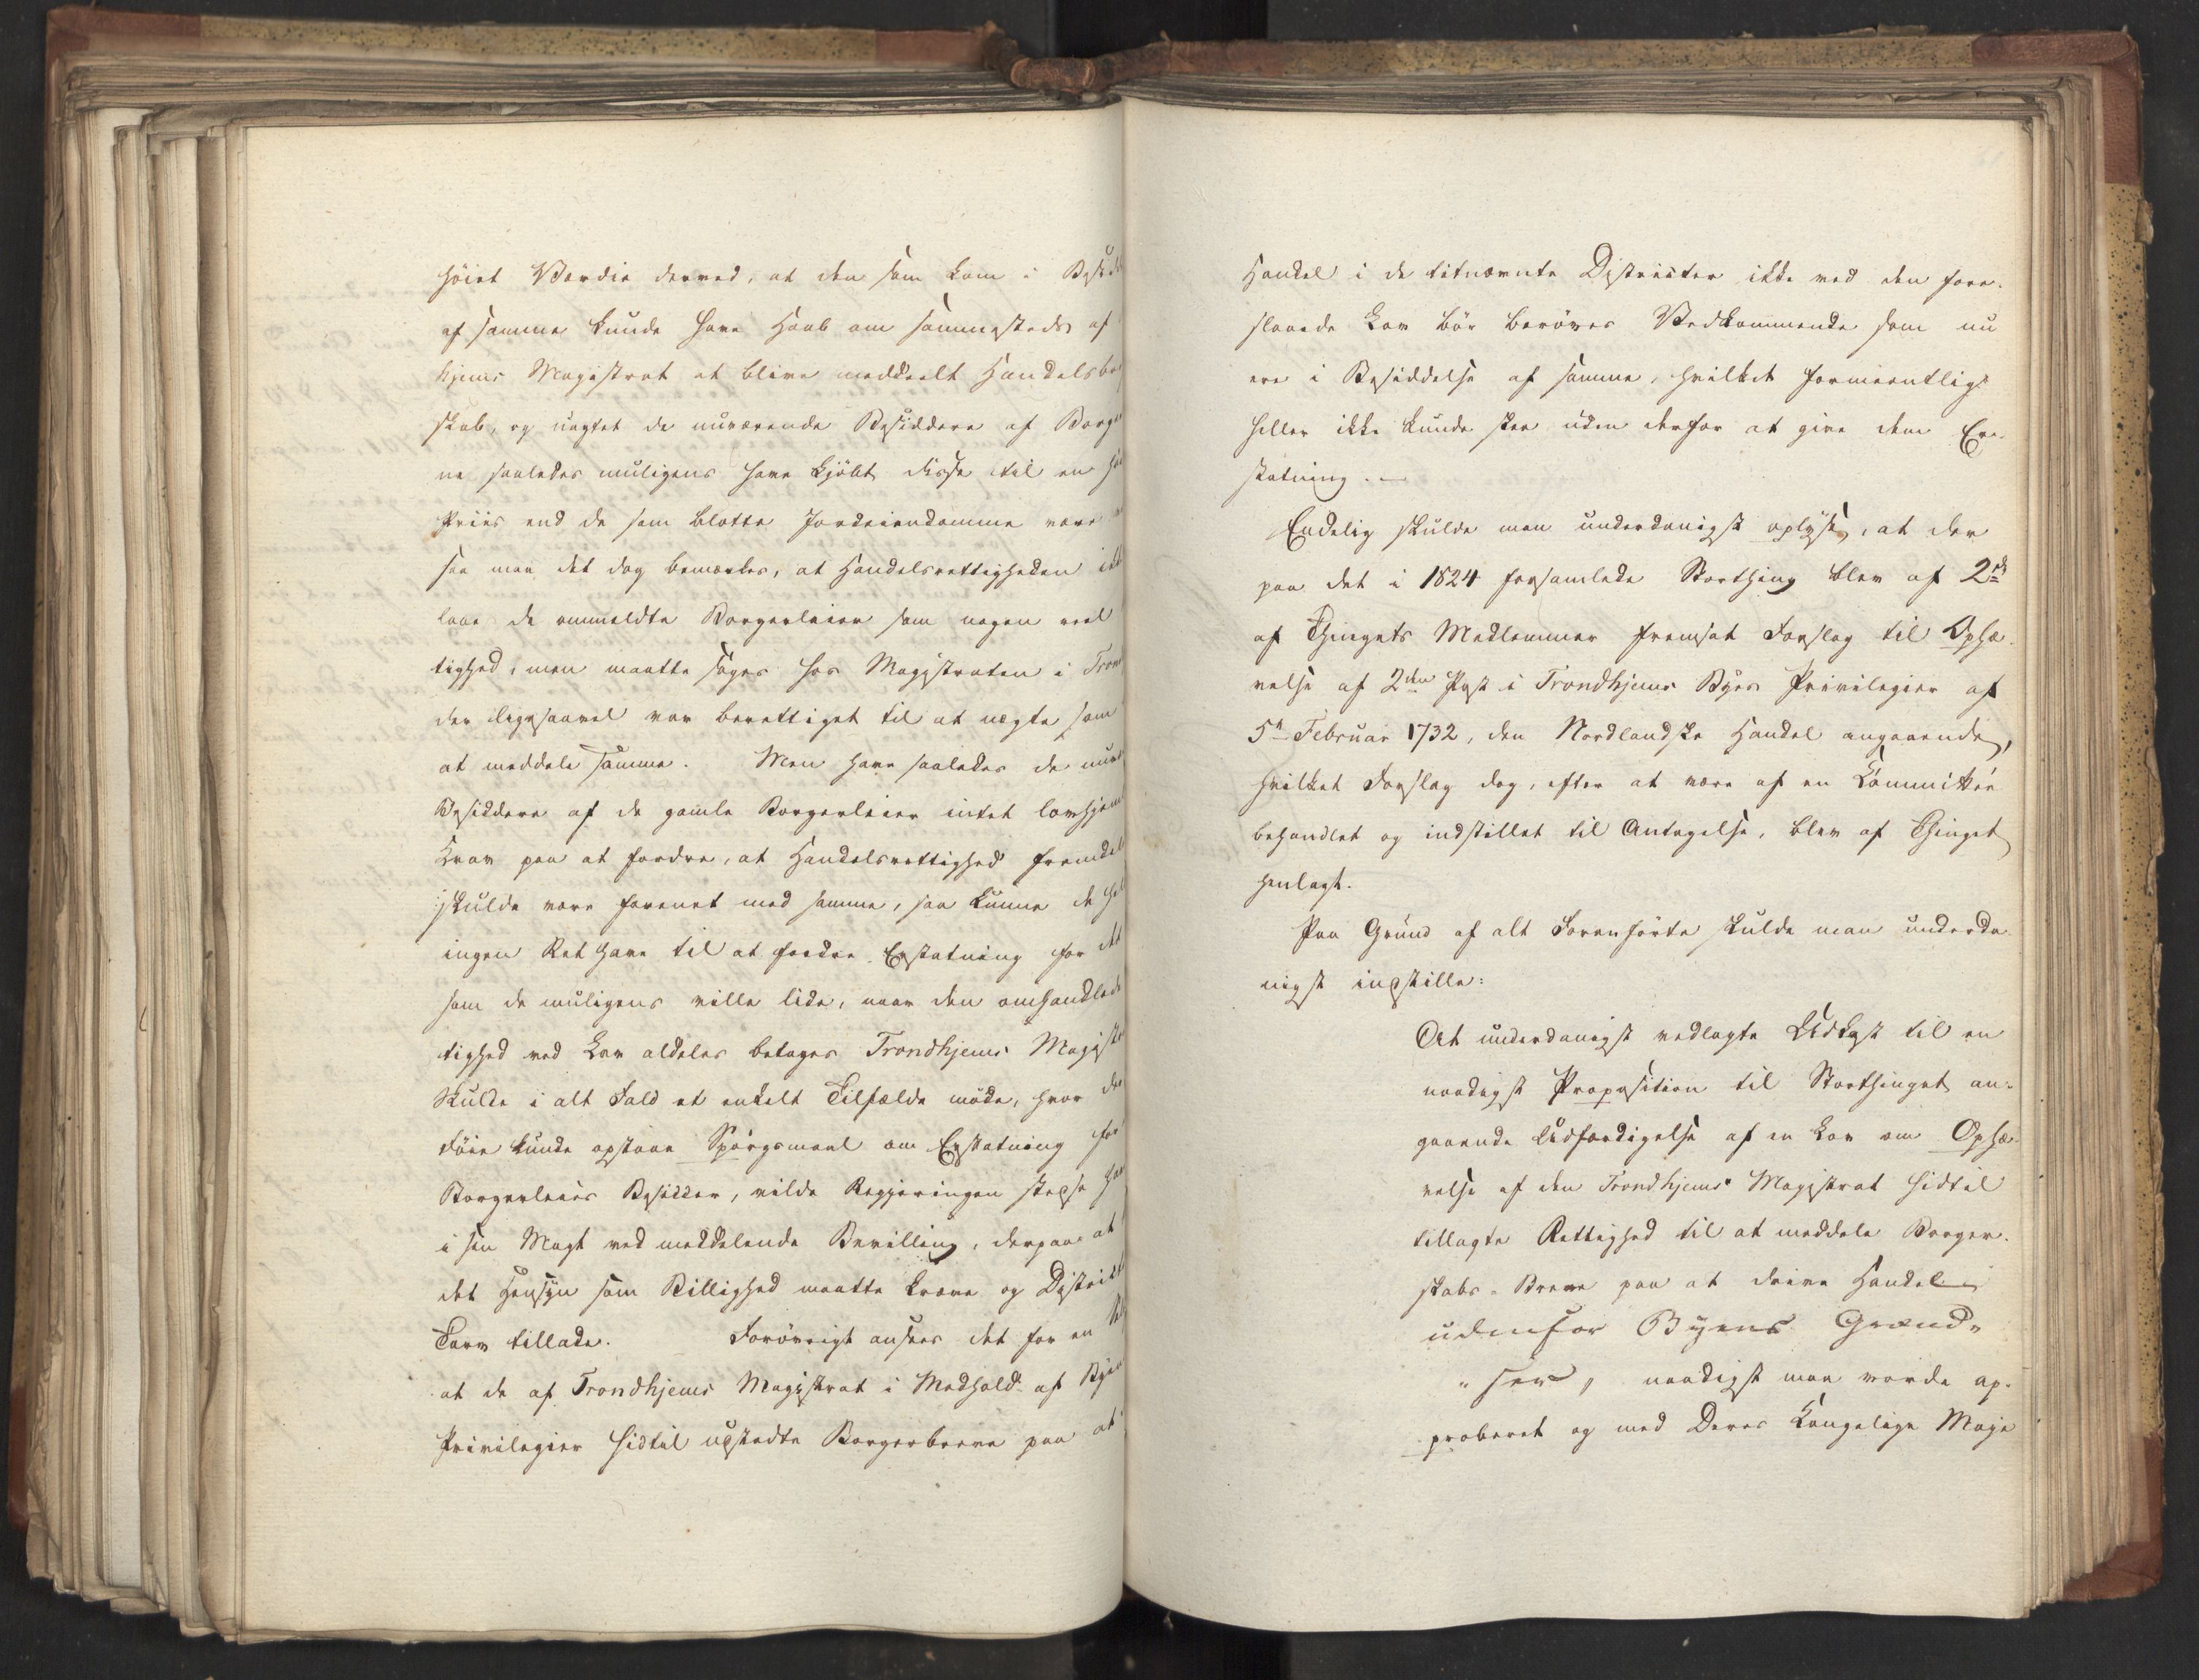 høiet Værdie derved, at den som kom i Besidde
af samme kunde have Haab om sammesteds af
hjems Magistrat at blive meddeelt Handelsbor
skab, og uagtet de nuværende Besiddere af Borger
ne saaledes muligens have kjøbt disse til en høi
Priis end de som blotte Jordeiendomme vare
saa maa det dog bemærkes, at Handelsrettigheden ikk
laae de ommeldte Borgerleier som nogen reel
tighed, men maatte søges hos Magistraten i Trond
der ligesaavel var berettiget til at negte som
at meddele samme. Men have saaledes de nuvæ
Besiddere af de gamle Borgerleier intet lovhjem
Krav paa at fordre, at Handelsrettighed fremdel
skulde være forenet med samme, saa kunne de hel
ingen Ret have til at fordre Erstatning for det
som de muligens ville lide, naar den omhandlede
tighed ved Lov aldeles betages Trondhjems Magist
Skulde i alt Fald et enkelt Tilfælde møde, hvor der
Føie kunde opstaae Spørgsmaal om Erstatning for
Borgerleies Besidder, vilde Regjeringen stedse hav
i sin Magt ved meddelende Bevilling, derpaa at
det Hensyn som Billighed maatte kræve og District
Tarv tillade. Forøvrigt ansees det for en
at de af Trondhjems Magistrat i Medhold af Byens
Privilegier hidtil udstedte Borgerbreve paa at
Handel i de titnævnte Districter ikke ved den fore-
slaaede Lov bør berøves Vedkommende som nu
ere i Besiddelse af samme, hvilket formeentlig
heller ikke kunde skee uden derfor at give dem Er-
statning. —
Endelig skulde man underdanigst oplyse, at der
paa det i 1824 forsamlede Storthing blev af 2de
af Thingets Medlemmer fremsat Forslag til Ophæ-
velse af 2den Post i Trondhjems Byes Privilegier af
5te Februar 1732, den Nordlandske Handel angaaende,
hvilket Forslag dog, efter at være af en Committée
behandlet og indstillet til Antagelse, blev af Thinget
henlagt.
Paa Grund af alt Foranførte skulde man underda-
nigst indstille:
At underdanigst vedlagte Udkast til en
naadigst Proposition til Storthinget an-
gaaende Udfærdigelse af en Lov om Ophæ-
velse af den Trondhjems Magistrat hidtil
tillagte Rettighed til at meddele Borger-
skabs-Breve paa at drive Handel
udenfor Byens Grænd-
"ser, naadigst maa vorde ap-
proberet og med Deres Kongelige Maje